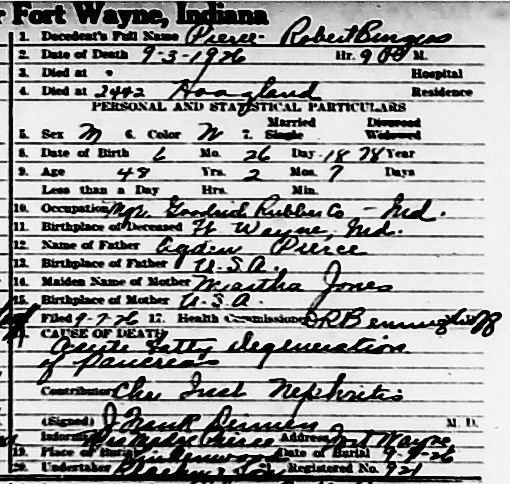 Fort Wayne, Indiana
1. Decedent's Full Name Pierce - Robert Burgess
2. Date of Death 9-3-1926 Hr. 9 P M.
3. Died at Hospital
4. Died at 2442 Hoagland Residence
PERSONAL AND STATISTICAL PARTICULARS
5. Sex M 6. Color W 7. Married Single Divorced Widowed
8. Date of Birth 6 Mo. 26 Day 1878 Year
9. Age 48 Yrs. 2 Mos. 7 Days
Less than a Day Hrs. Min.
10. Occupation Mgr. Goodrich Rubber Co - Ind.
11. Birthplace of Deceased Ft Wayne, Ind.
12. Name of Father Ogden Pierce
13. Birthplace of Father U.S.A.
14. Maiden Name of Mother Martha Jones
15. Birthplace of Mother U.S.A.
Filed 9-7-26 17. Health Commissioner
CAUSE OF DEATH
Acute Fatty Degeneration
of Pancreas
Contributory Chr Inst Nephritis
(Signed) J Frank M. D.
Informant Mrs Pierce Address Fort Wayne
19. Place of Burial Lindenwood Date of Burial
20. Undertaker & Sons Registered No. 921